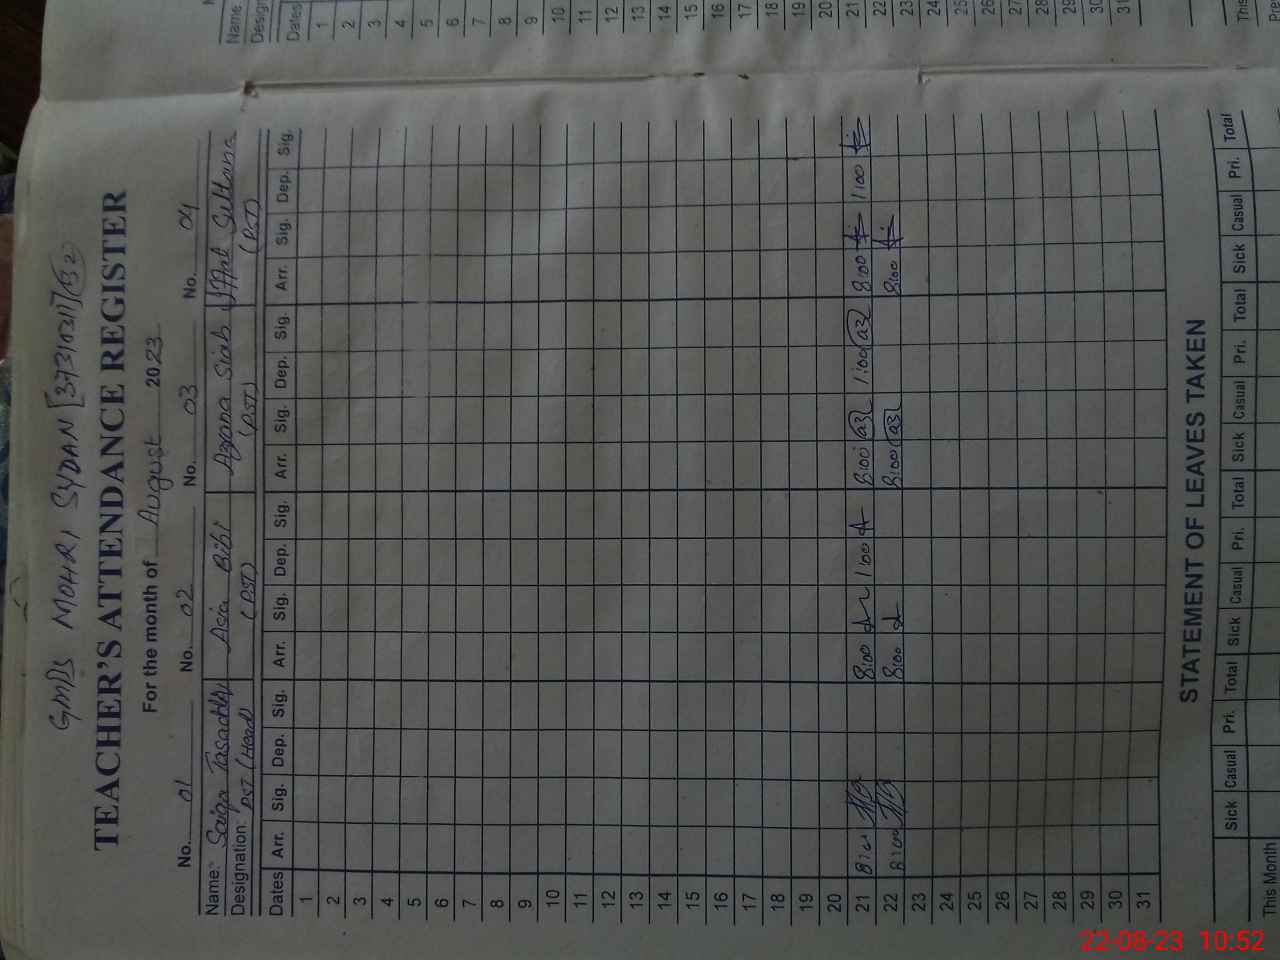 GMPS MOHRI SYDAN [37310317] (132)
TEACHER'S ATTENDANCE REGISTER
For the month of August 2023
No. 01 No. 02 No. 03 No. 04
Name: Saiqa Tasaddq Asia Bibi Azona Siab Iffat Sultana
Designation: PST (Head) (PST) (PST) (PST)
Dates Arr. Sig. Dep. Sig. Arr. Sig. Dep. Sig. Arr. Sig. Dep. Sig. Arr. Sig. Dep. Sig.
1
2
3
4
5
6
7
8
9
10
11
12
13
14
15
16
17
18
19
20
21 8:00 8:00 1:00 8:00 1:00 8:00 1:00
22 8:00 8:00 8:00 8:00
23
24
25
26
27
28
29
30
31
STATEMENT OF LEAVES TAKEN
Sick Casual Pri. Total Sick Casual Pri. Total Sick Casual Pri. Total Sick Casual Pri. Total
This Month
Name
Dates
1
2
3
4
5
6
7
8
9
10
11
12
13
14
15
16
17
18
19
20
21
22
23
24
25
26
27
28
29
30
31
22-08-23 10:52